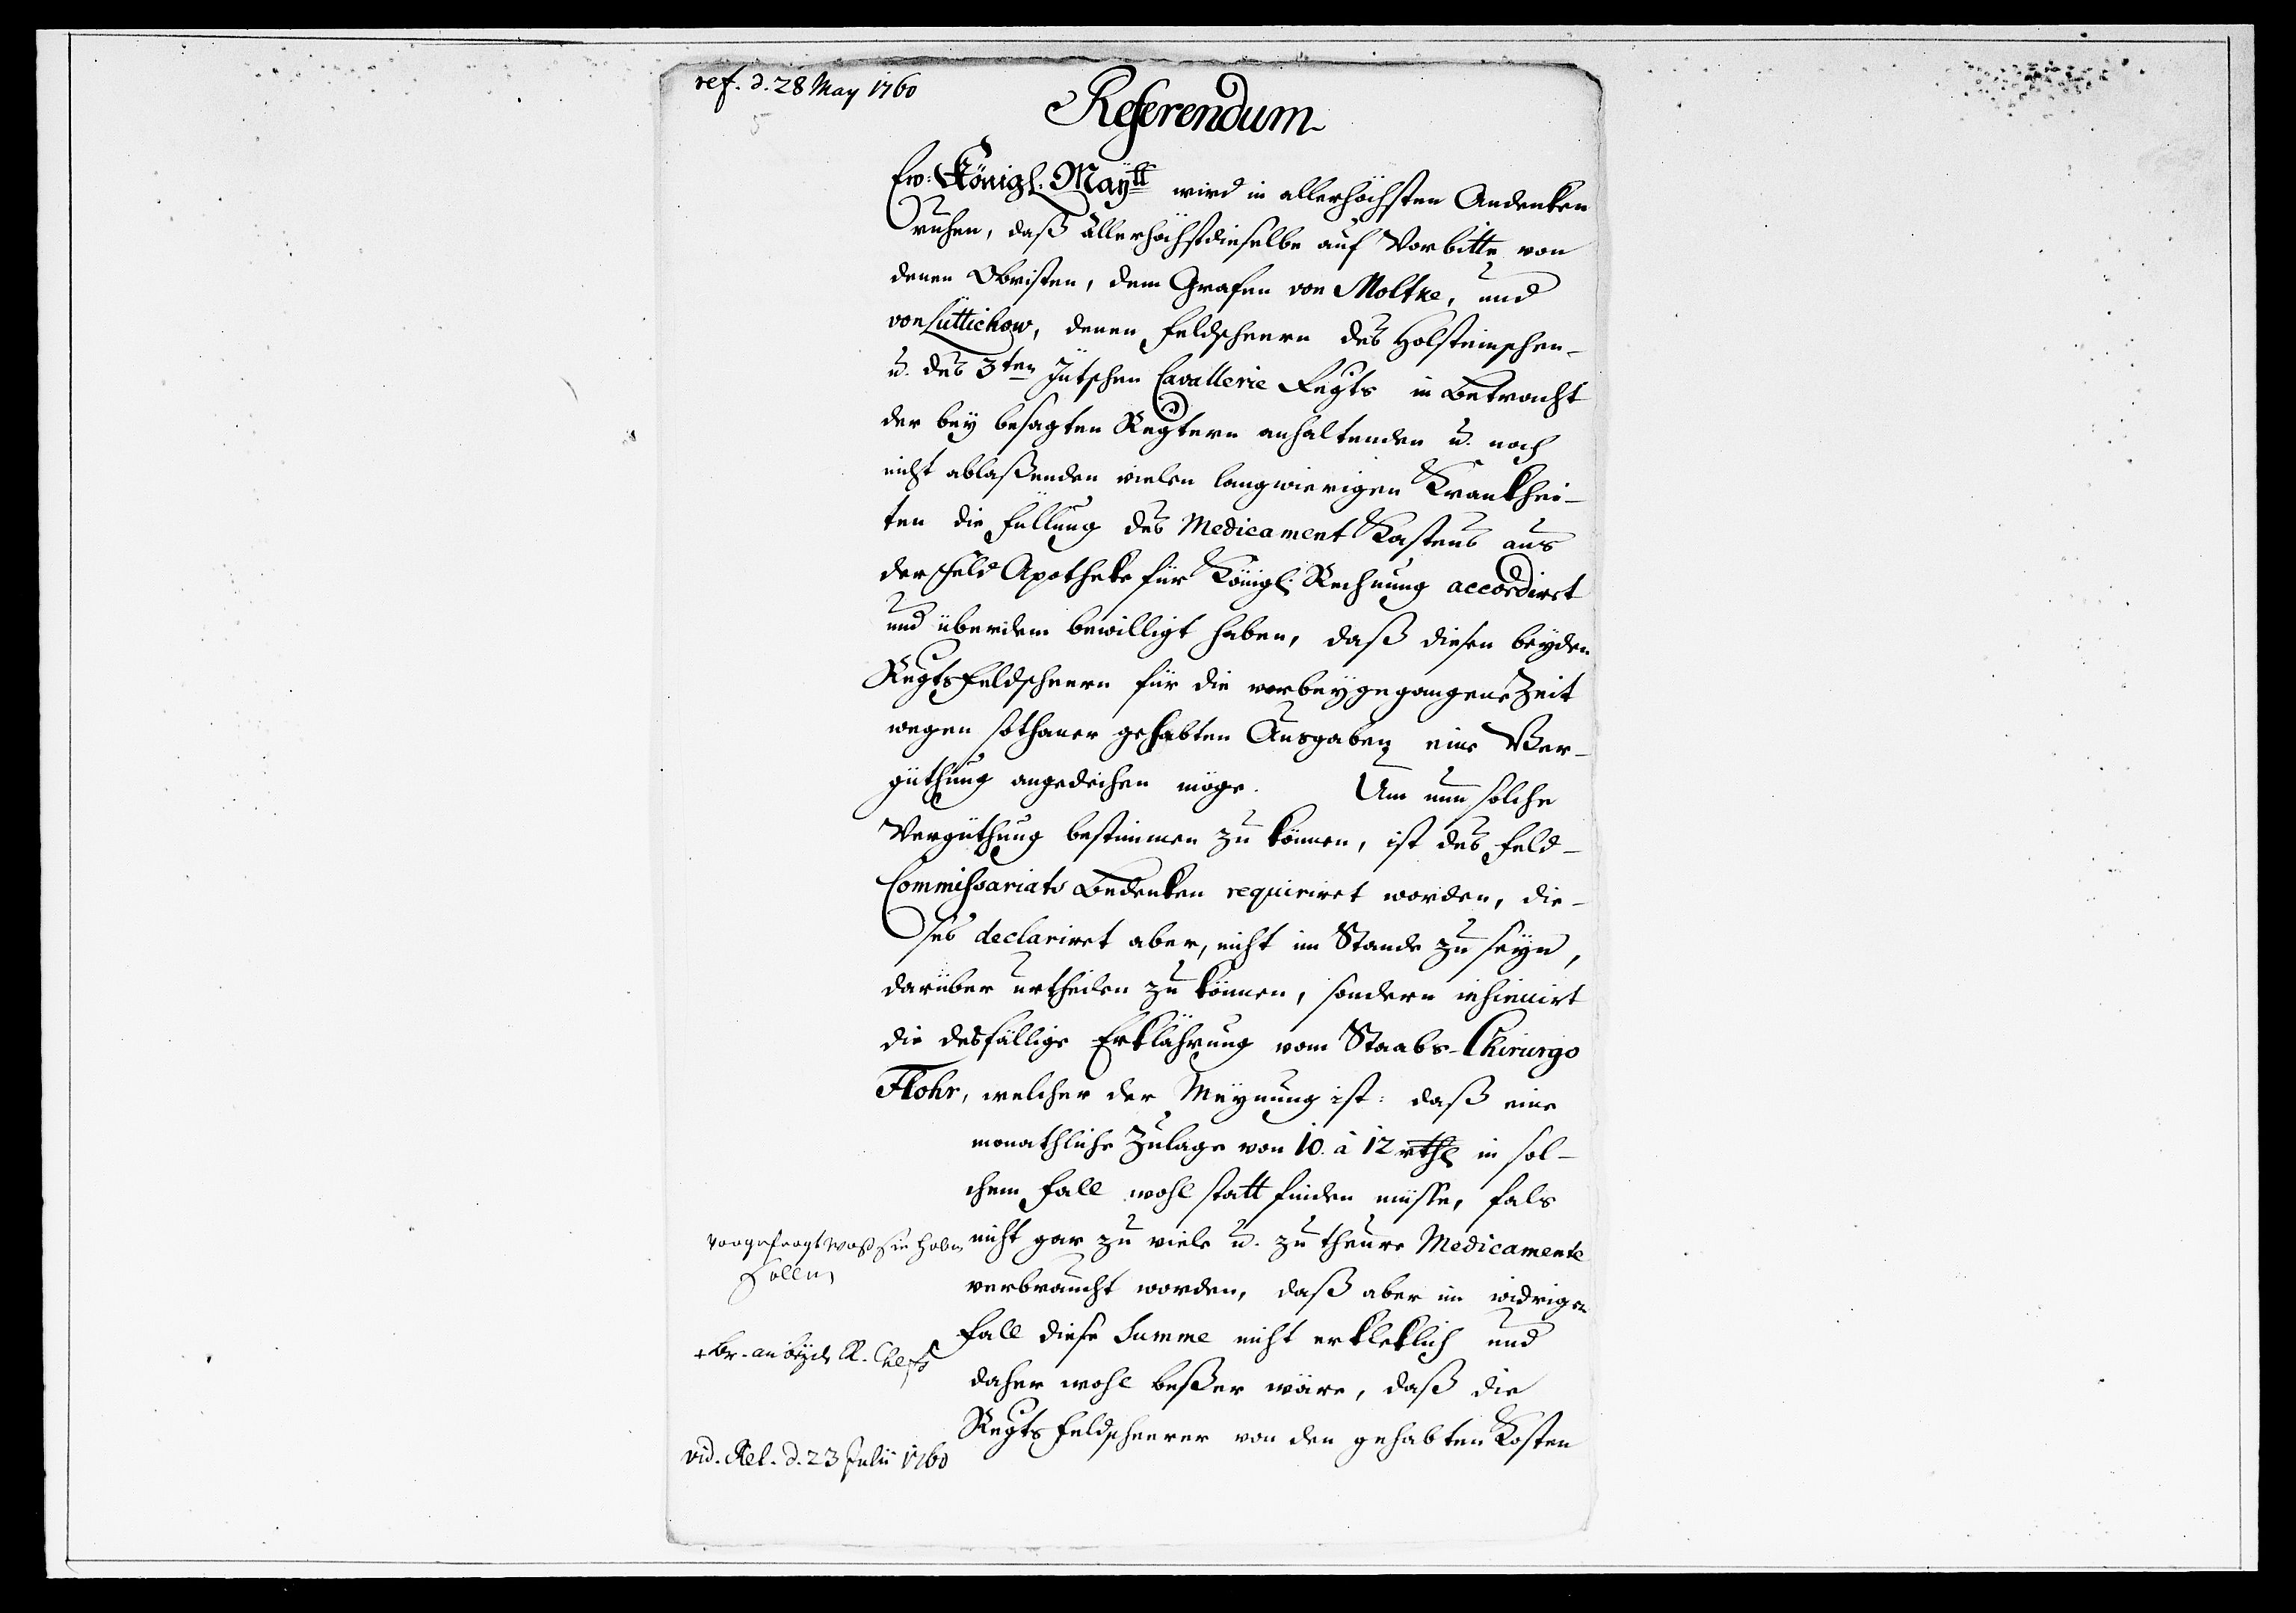 ref. d. 28 May 1760
5
Referendum
Ew: Königl. Maytt wird in allerhöchsten Andenken
ruhen, daß Allerhöchstdieselbe auf Vorbitte von
denen Obristen, dem Grafen von Moltke, und
von Lüttichow, denen Feldscheern des Holsteinschen-
u. des 3ten Jütschen Cavallerie Regts in Betracht
der bey besagten Regtern anhaltenden u. noch
nicht ablaßenden vielen langwierigen Krankhei-
ten die Füllung des Medicament Kastens aus
der Feld Apotheke für Königl. Rechnung accordiret
und überdem bewilligt haben, daß diesen beyden
Regtsfeldscheern für die vorbeygegangene Zeit
wegen sothaner gehabten Ausgaben eine Ver-
güthung angedeihen möge. Um nun solche
Vergüthung bestimmen zu können, ist des Feld-
Commissariats Bedenken requiriret worden, die-
ses declariret aber, nicht im Stande zu seyn,
darüber urtheilen zu können, sondern inhieriret
die desfällige Erklährung vom Staabs-Chirurgo
Flohr, welcher der Meynung ist: daß eine
monathliche Zulage von 10. à 12 rthl in sol-
chem Fall wohl statt finden müsse, fals
nicht gar zu viele u. zu theure Medicamente
verbraucht worden, daß aber im widrigen
Fall diese Summe nicht erkleklich und
daher wohl beßer wäre, daß die
Regts Feldscheerer von den gehabten Kosten
vorgefragt waß sie haben
sollen
+ br. an beyde R. Chefs
vid. Rel. d. 23 Julii 1760